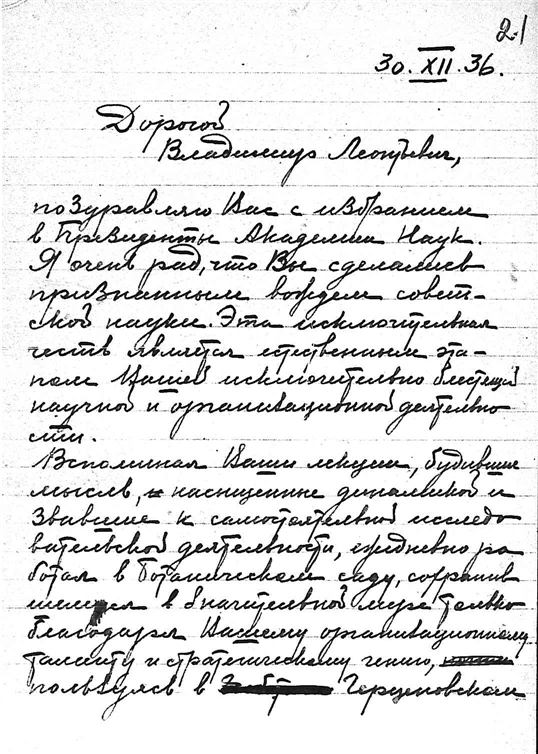 21
30.XII.36.
Дорогой
Владимир Леонтьевич,
поздравляю Вас с избранием
в Президенты Академии Наук.
Я очень рад, что Вы сделались
признанным вождем совет-
ской науки. Эта исключительная
честь является естественным эта-
пом Вашей исключительно блестящей
научной и организационной деятельно
сти.
Вспоминая Ваши лекции, будившие
мысль, насыщенные динамикой и
звавшие к самостоятельной исследо
вательской деятельности, ежедневно ра
ботая в Ботаническом саду, сохранив
шемся в значительной мере только
благодаря Вашему организационному
таланту и стратегическому гению,
пользуясь в Герценовском